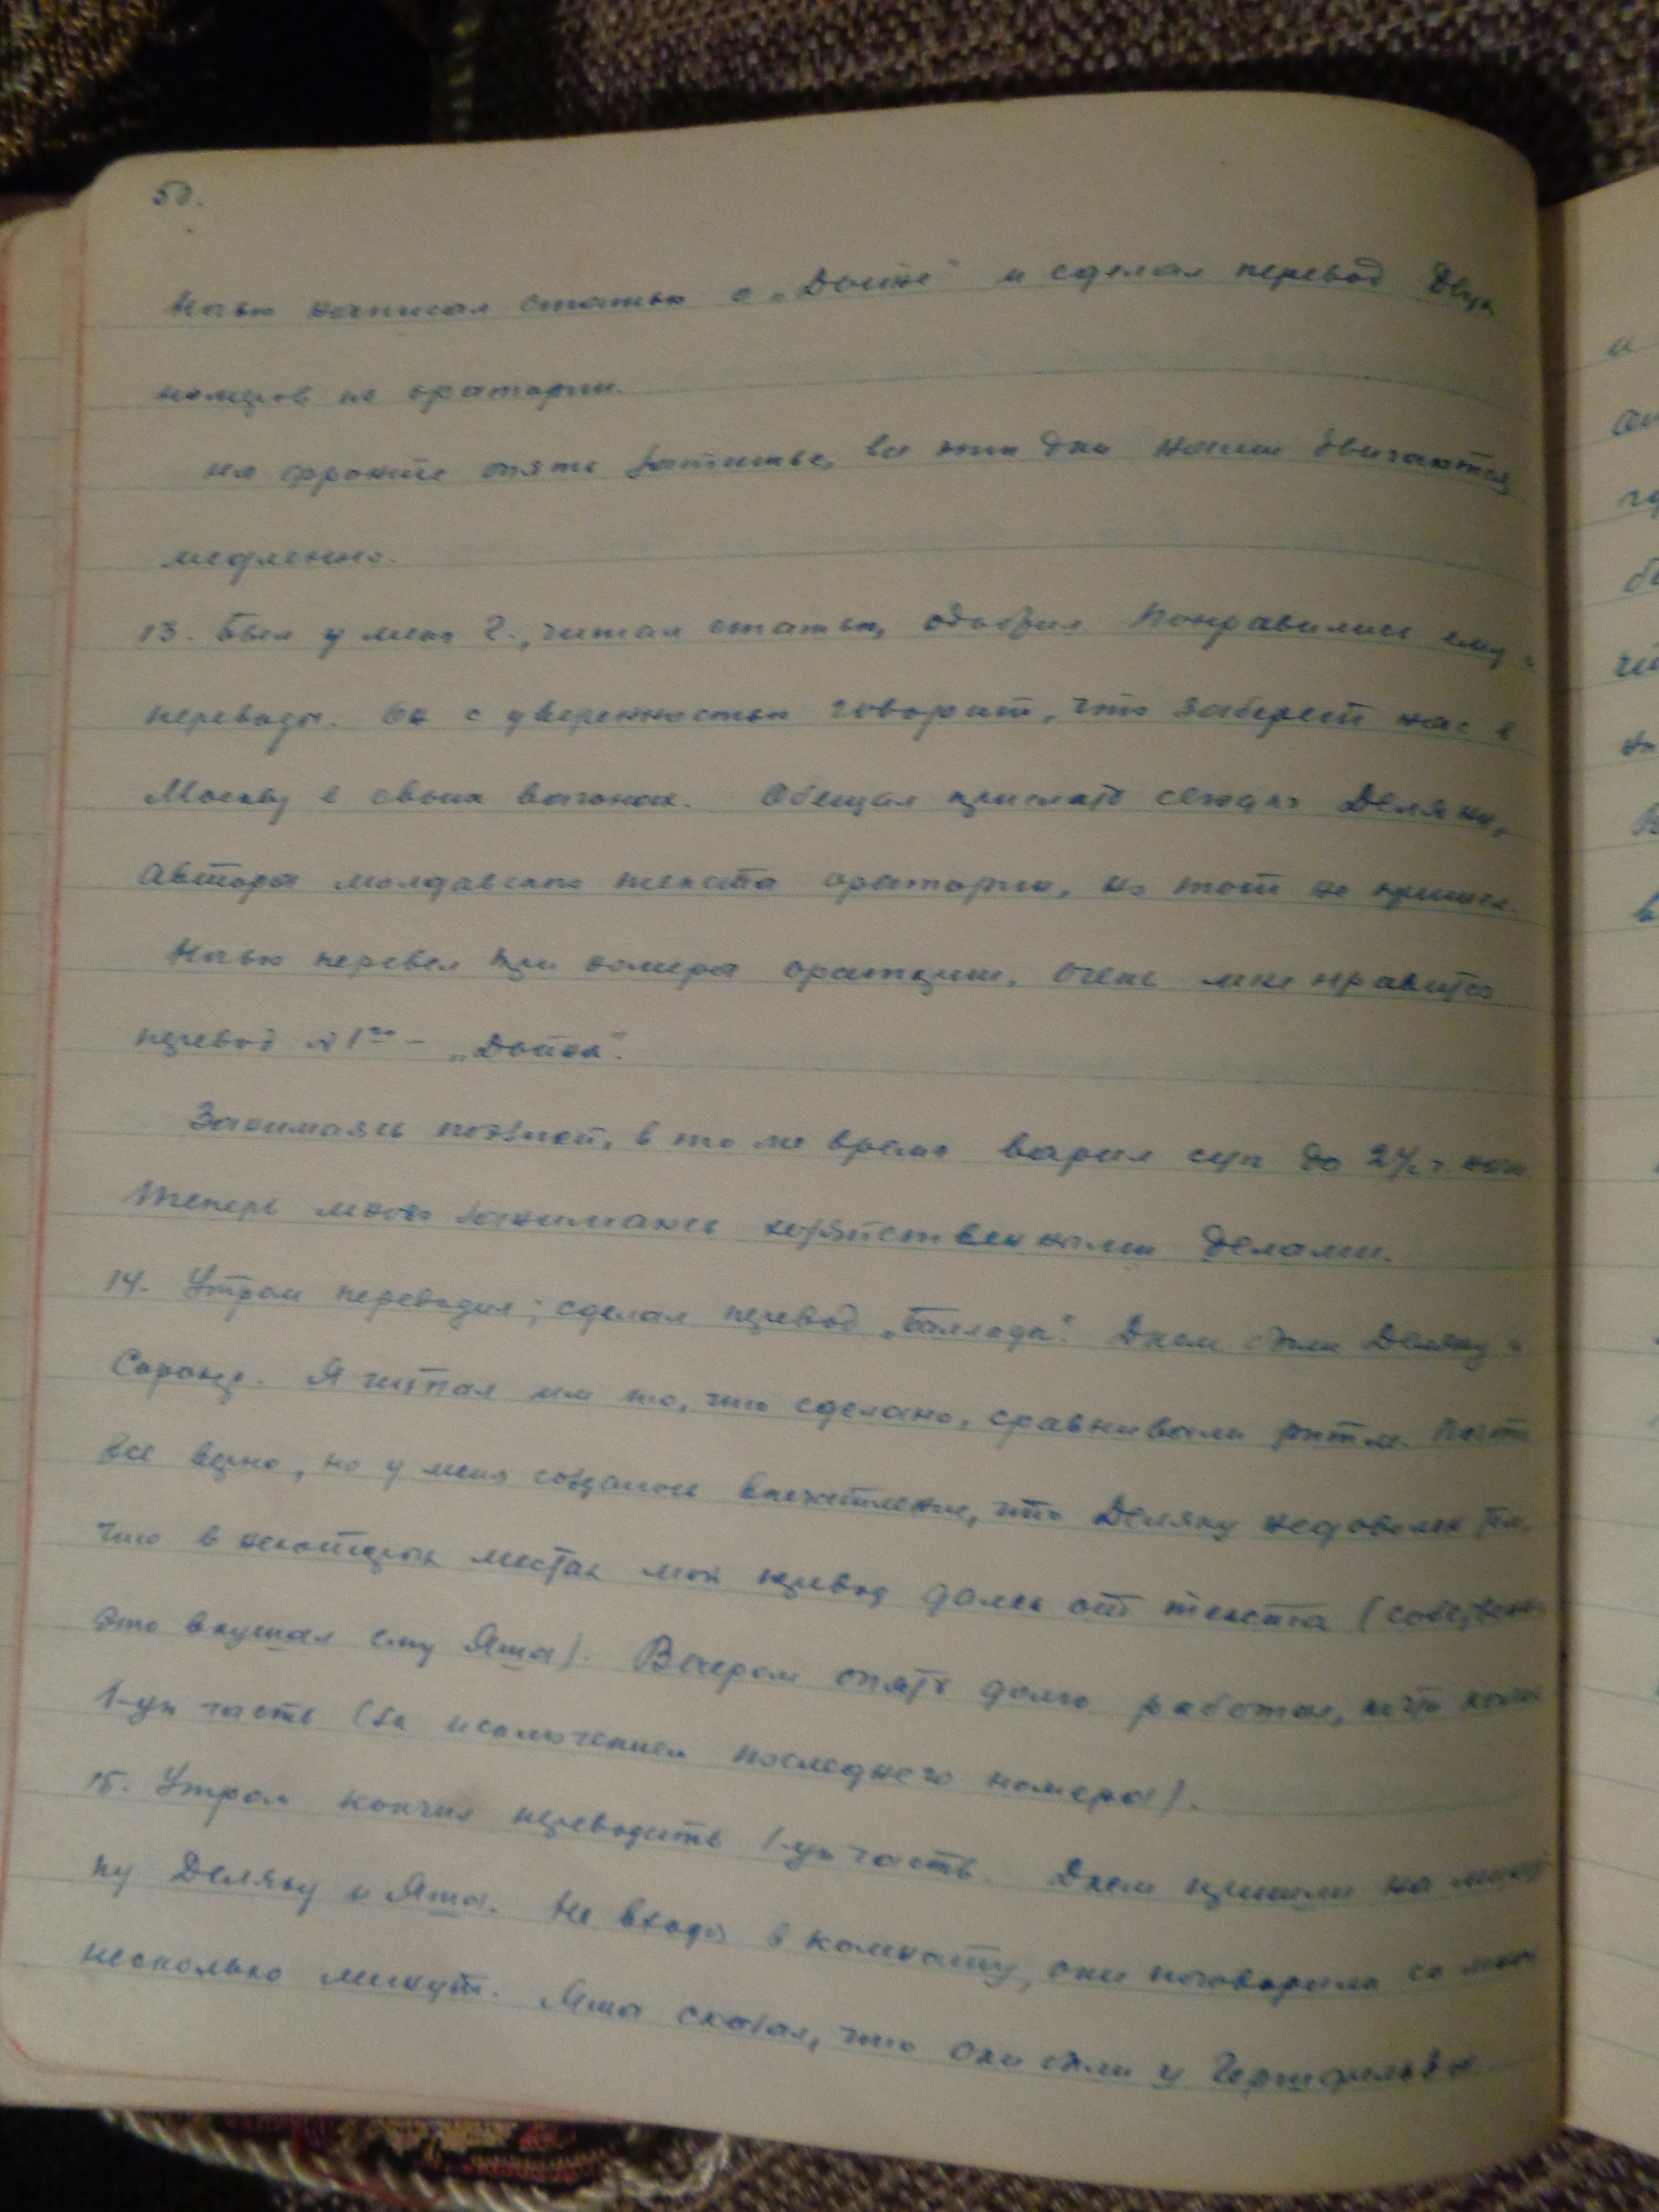 50.
Ночью написал статью о „Дойне“ и сделал перевод двух
номеров из оратории.
На фронте опять затишье, все эти дни наши двигаются
медленно.
13. Был у меня Г., читал статью, одобрил. Понравились ему и
переводы. Он с уверенностью говорит, что заберет нас в
Москву в своих вагонах. Обещал прислать сюда Деляну,
автора молдавского текста оратории, но тот не пришел.
Ночью перевел три номера оратории. Очень мне нравится
перевод № 1го – „Дойна“.
Занимаясь поэзией, в то же время варил суп до 2½ ч. ночи
Теперь много занимаюсь хозяйственными делами.
14. Утром переводил; сделал перевод „Баллада“. Днем были Деляну и
Я читал им то, что сделано, сравнивали ритм. Почти
все верно, но у меня создалось впечатление, что Деляну недоволен тем,
что в некоторых местах мой перевод далек от текста (собственно
это внушал ему Яша). Вечером опять долго работал, почти кончил
1-ую часть (за исключением последнего номера).
15. Утром кончил переводить 1-ую часть. Днем пришли на мину-
ту Деляну и Яша. Не входя в комнату, они поговорили со мной
несколько минут. Яша сказал, что они были у Гершфельда